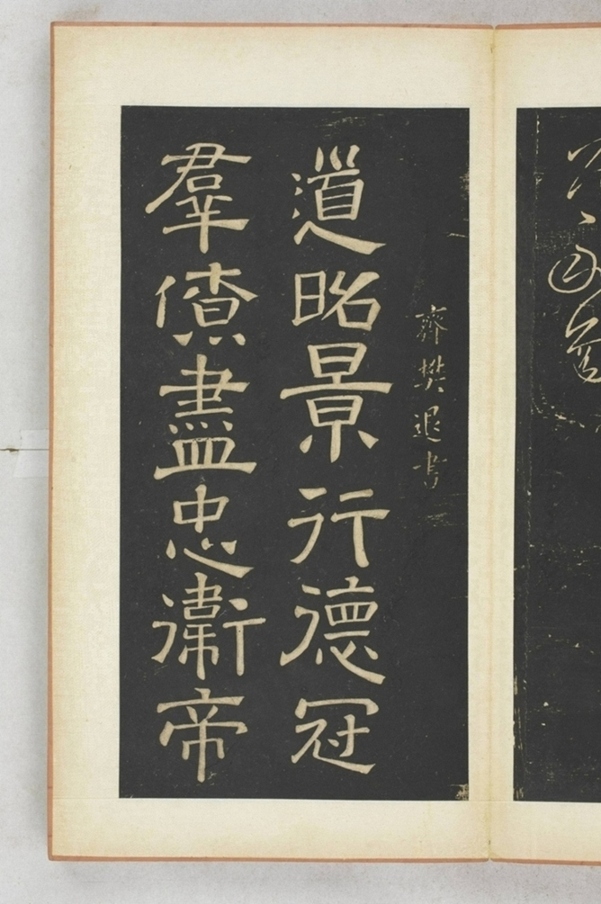 齊樊遜書
道昭景行德冠
羣僚盡忠衛帝